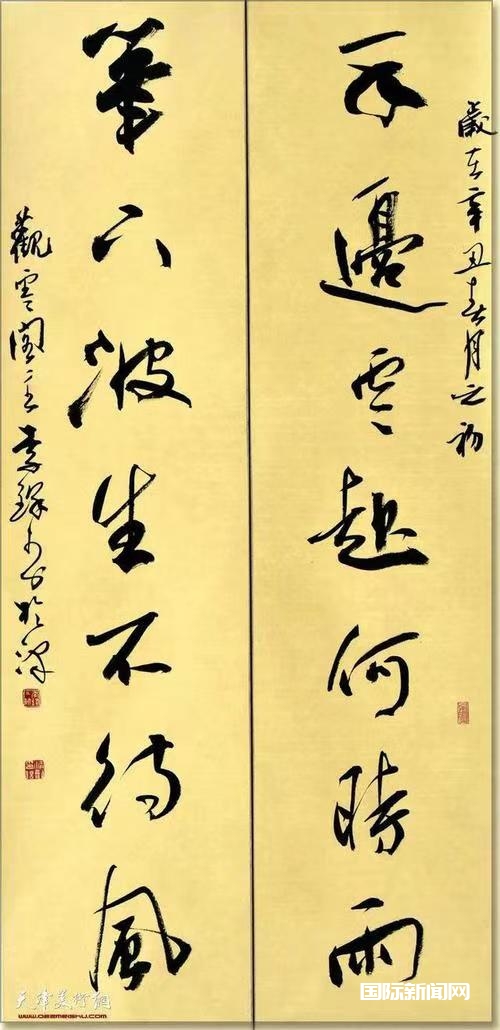 歲在辛丑春月之初
邊雲起何時雨
筆下波生不待風
觀雲閣主李於津
天津美術網
www.022meishu.com
国际新闻网